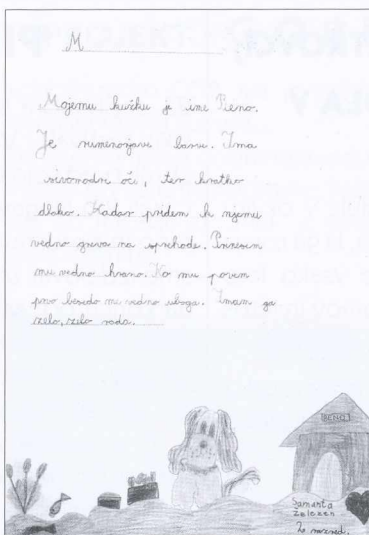 M
Mojemu kužku je ime Beno.
Je rumenorjave barve. Ima
sivomodre oči, ter kratko
dlako. Kadar pridem k njemu
vedno greva na sprehode. Prinesem
mu vedno hrano. Ko mu povem
prvo besedo me vedno uboga. Imam ga
zelo, zelo rada.
BENO
Samanta
Železen
2. razred.